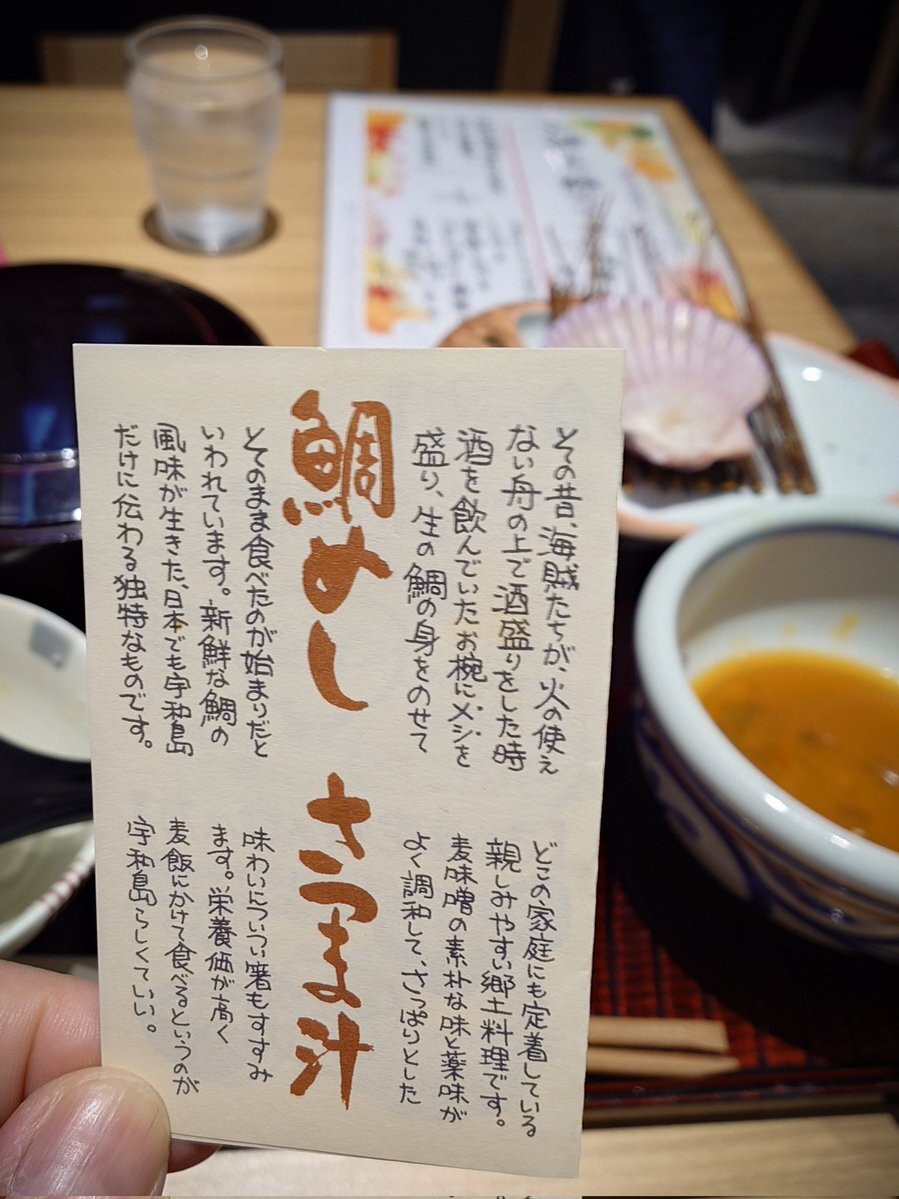 鯛めし
その昔、海賊たちが、火の使え
ない舟の上で酒盛りをした時
酒を飲んでいたお椀にメシを
盛り、生の鯛の身をのせて
そのまま食べたのが始まりだと
いわれています。新鮮な鯛の
風味が生きた、日本でも宇和島
だけに伝わる独特なものです。
さつま汁
どこの家庭にも定着している
親しみやすい郷土料理です。
麦味噌の素朴な味と薬味が
よく調和して、さっぱりとした
味わいについつい箸もすすみ
ます。栄養価が高く
麦飯にかけて食べるというのが
宇和島らしくていい。